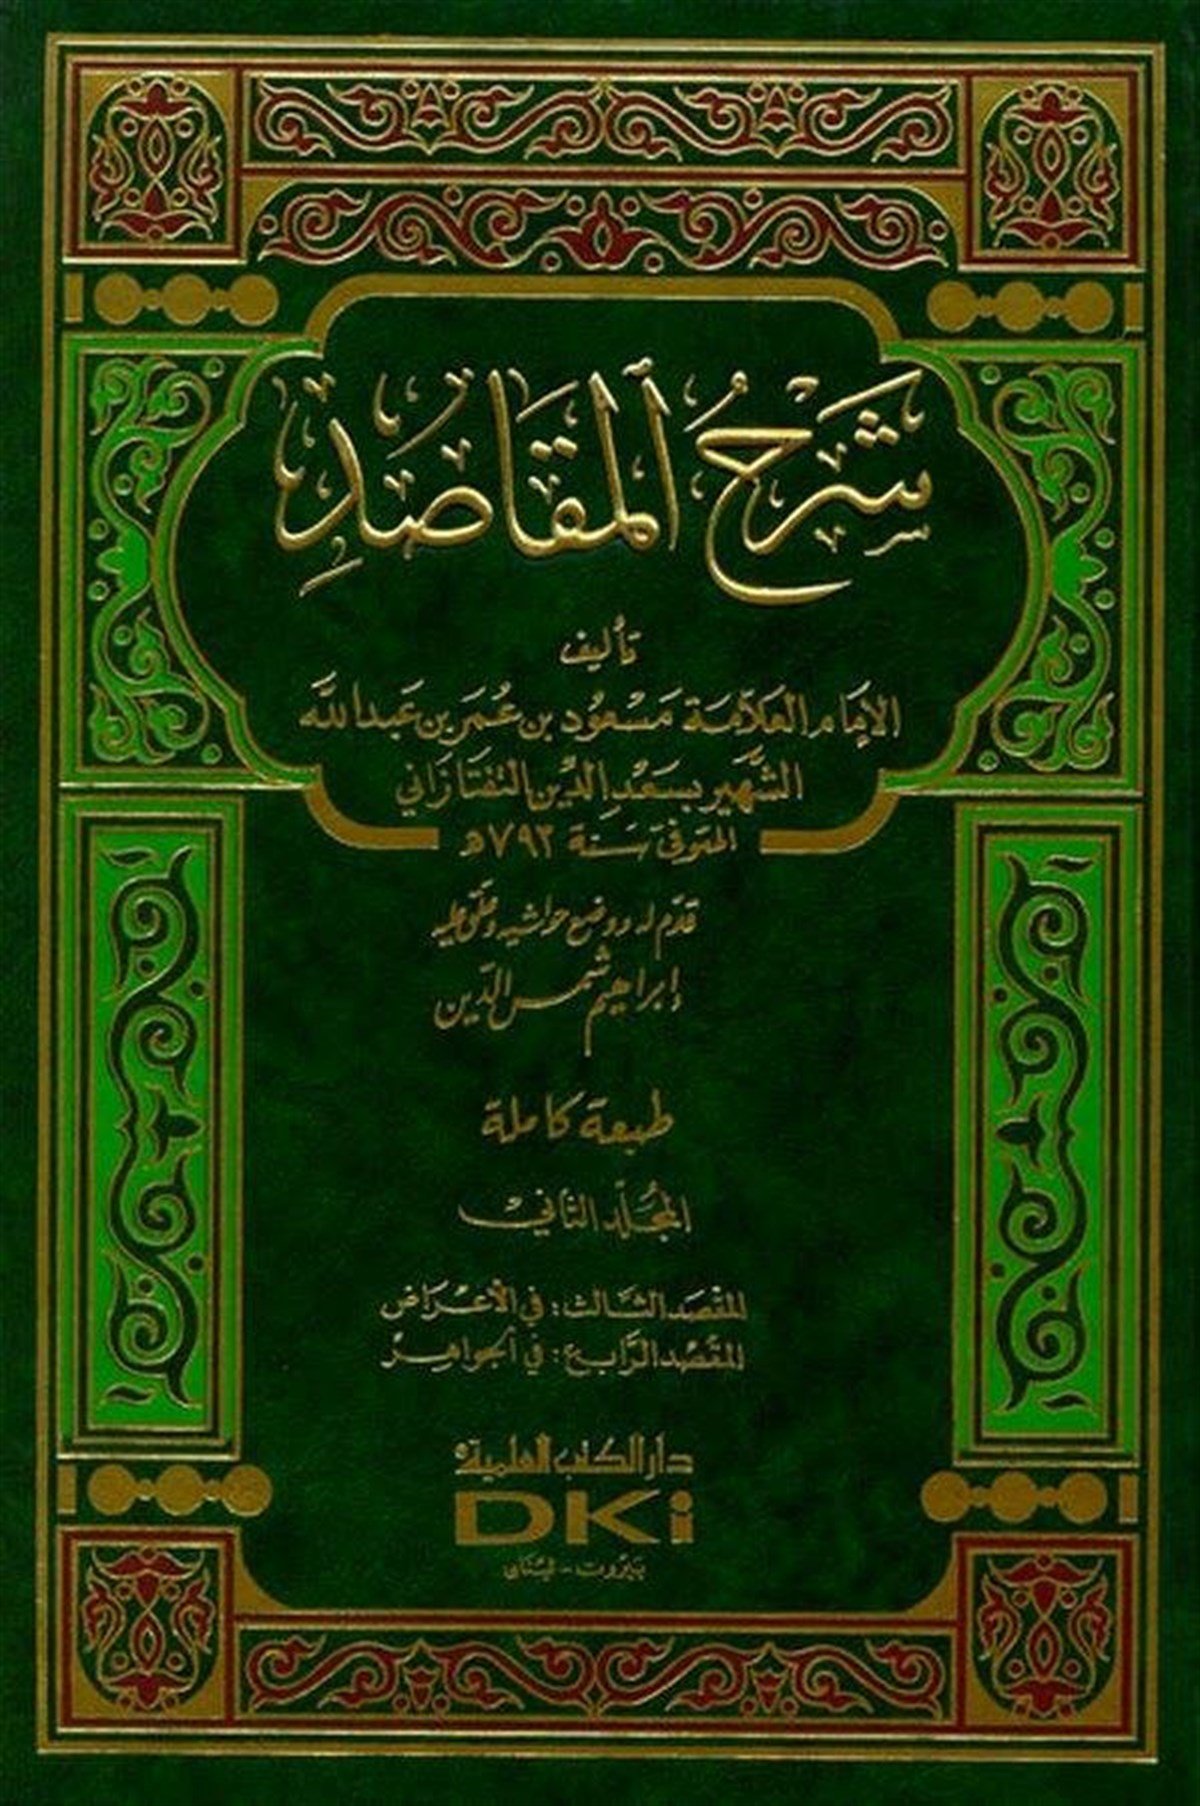 شَرْحُ ٱلْمَقَاصِدِ
تأليف
الإمام العلامة مسعود بن عمر بن عبد الله
الشهير بسعد الدين التفتازاني
المتوفى سنة ٧٩٣هـ
قدم له ووضع حواشيه وعلق عليه
إبراهيم شمس الدين
طبعة كاملة
المجلد الثاني
المقصد الثالث: في الأعراض
المقصد الرابع: في الجواهر
دار الكتب العلمية
DKi
بيروت - لبنان